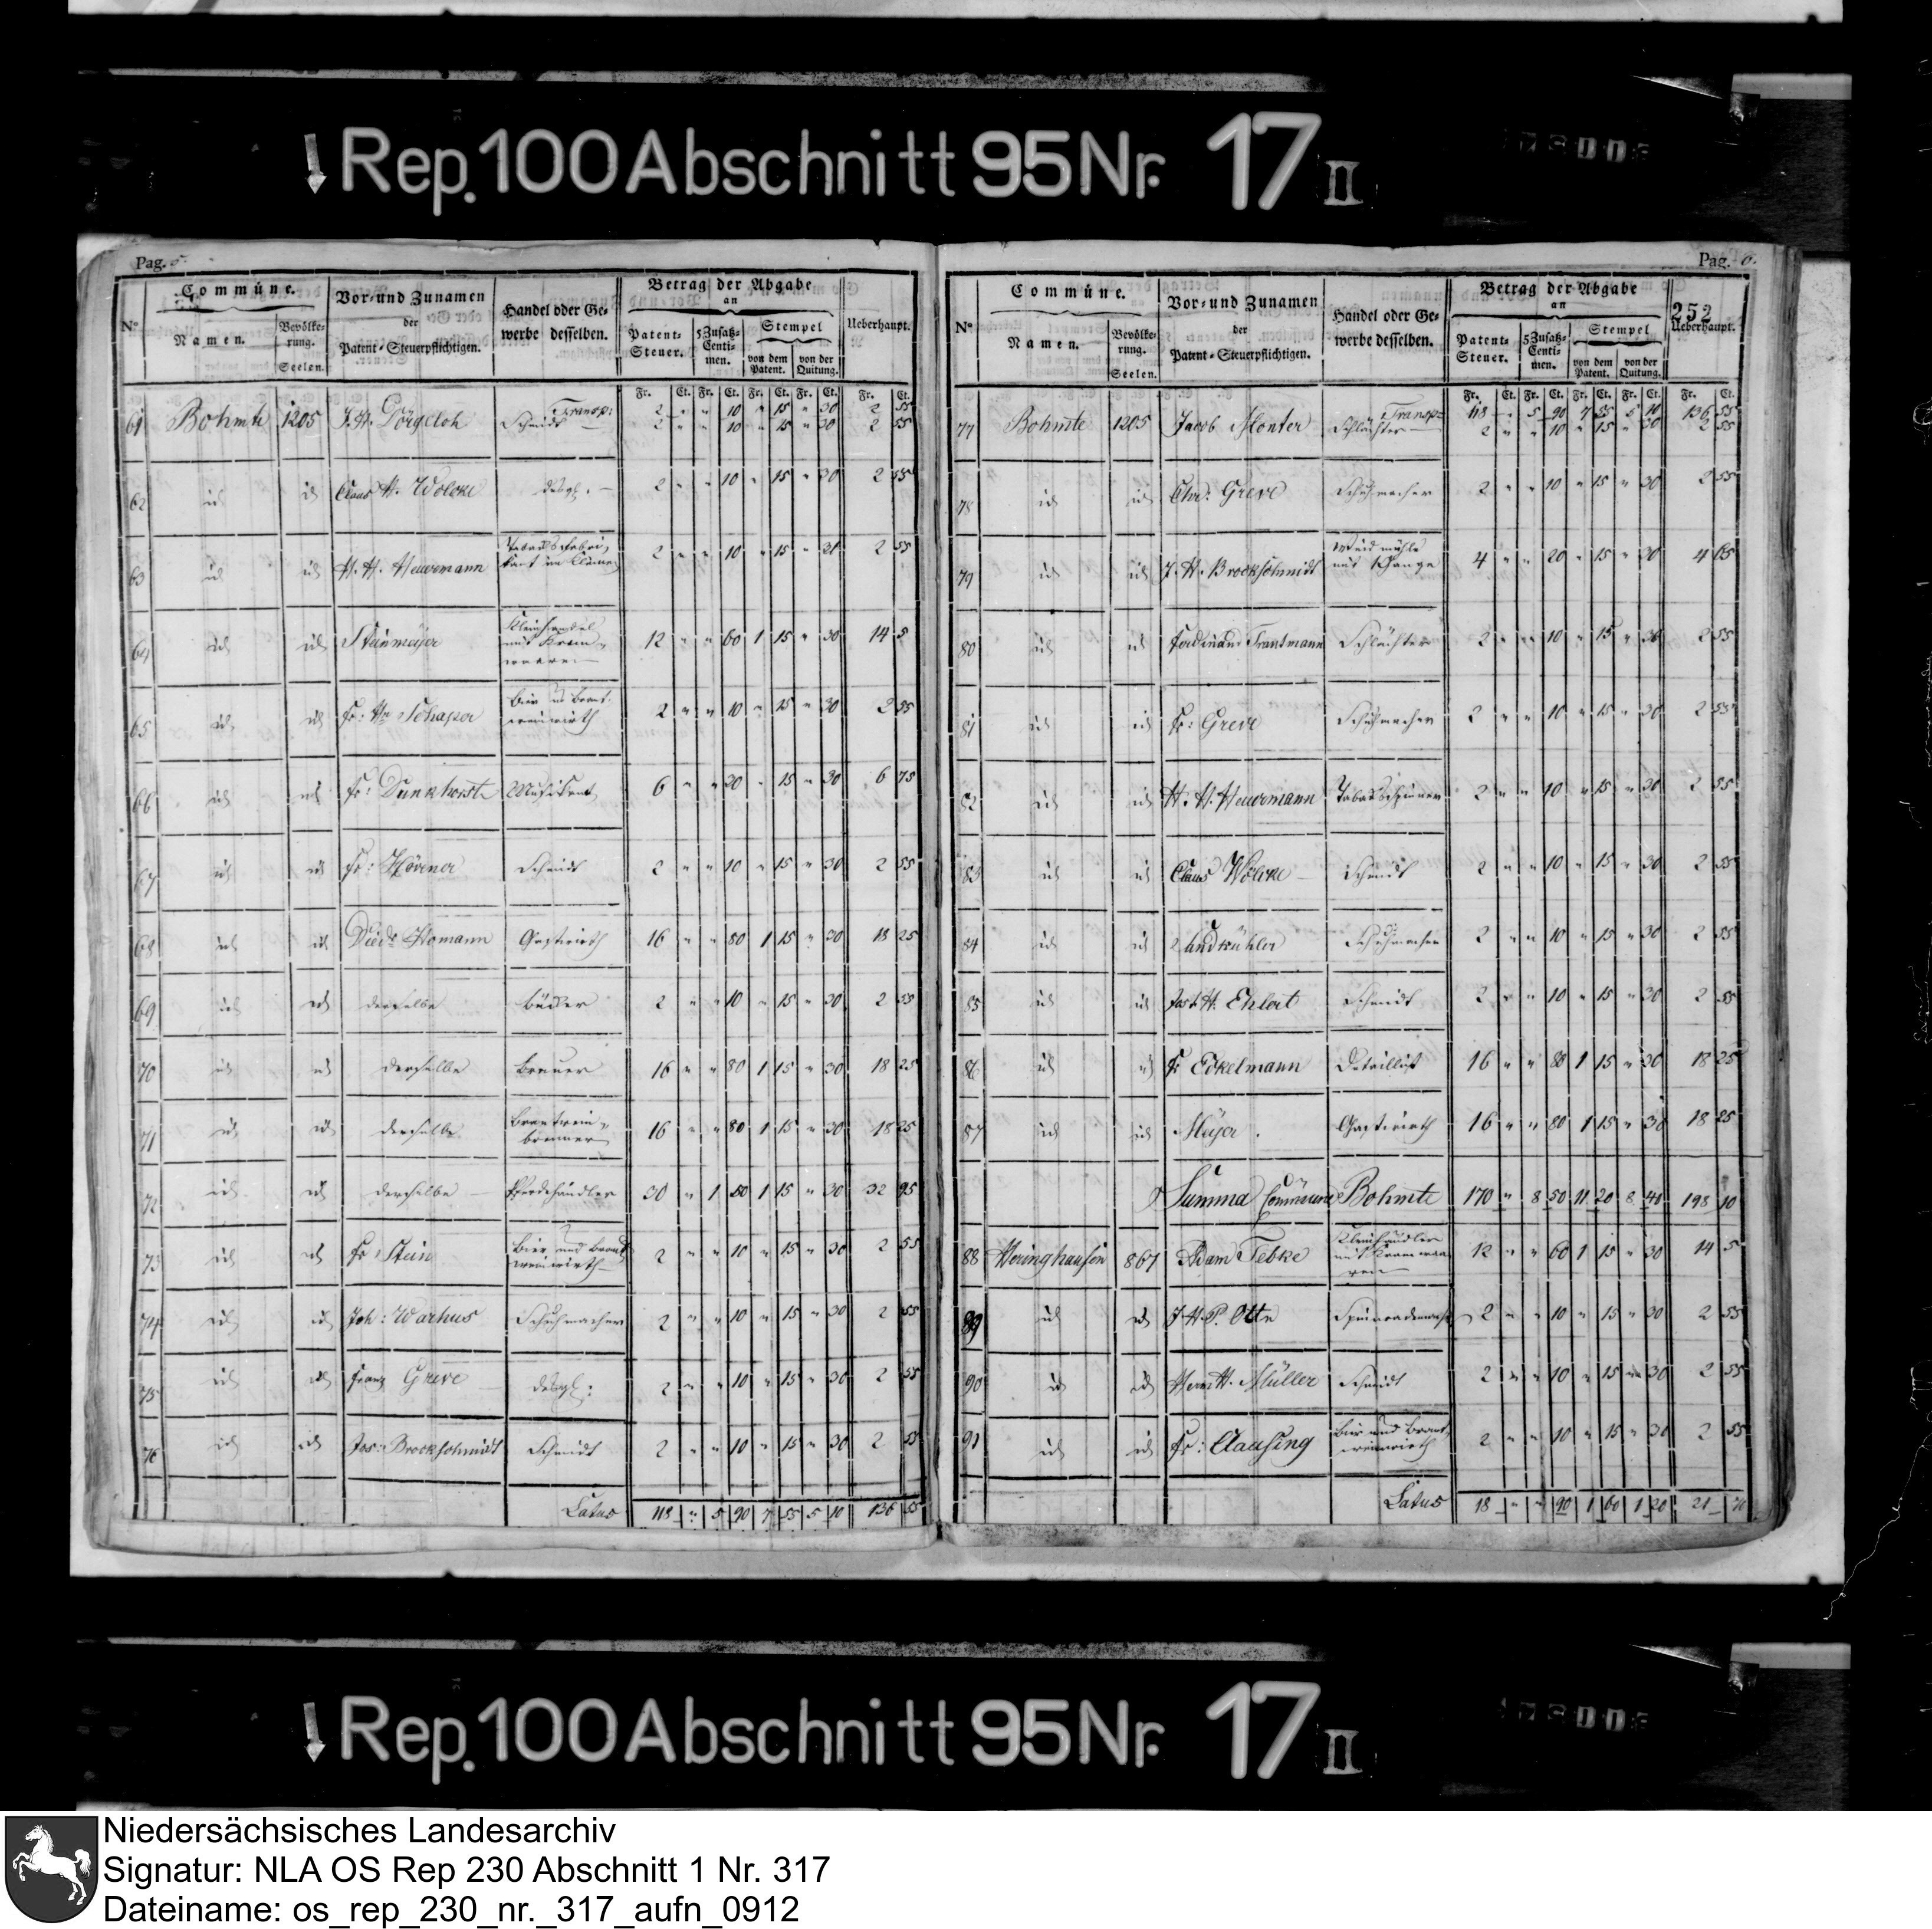 Rep. 100 Abschnitt 95 Nr. 17 II
Pag. 5.
Commüne. Vor- und Zunamen der Patent-Steuerpflichtigen. Handel oder Gewerbe desselben. Betrag der Abgabe an Ueberhaupt.
No Namen. Bevölkerung. Seelen. Patent-Steuer. 5 Zusatz-Centimen. Stempel von dem Patent. von der Quitung.
Fr. Ct. Fr. Ct. Fr. Ct. Fr. Ct. Fr. Ct.
Transp: 2 " " 10 " 15 " 30 2 55
61 Bohmte 1205 J. H. Dörgeloh Schmidt 2 " " 10 " 15 " 30 2 55
62 id id Claus H. Wolcke desgl. 2 " " 10 " 15 " 30 2 55
63 id id H. H. Heuermann Tabacksfabrikant im Kleinen 2 " " 10 " 15 " 30 2 55
64 id id Steinmeyer Kleinhandel mit Kramwaaren 12 " " 60 1 15 " 30 14 5
65 id id Fr: Hr Schaper Bier u Brantweinwirth 2 " " 10 " 15 " 30 2 55
66 id id Fr: Dunkhorst Musikant 6 " " 30 " 15 " 30 6 75
67 id id Fr: Hövener Schmidt 2 " " 10 " 15 " 30 2 55
68 id id Diedr Homann Gastwirth 16 " " 80 1 15 " 30 18 25
69 id id derselbe Bäcker 2 " " 10 " 15 " 30 2 55
70 id id derselbe Brauer 16 " " 80 1 15 " 30 18 25
71 id id derselbe Brantweinbrenner 16 " " 80 1 15 " 30 18 25
72 id id derselbe Pferdehändler 30 " 1 50 1 15 " 30 32 95
73 id id Fr: Stein Bier und Brantweinwirth 2 " " 10 " 15 " 30 2 55
74 id id Joh: Warhus Schuhmacher 2 " " 10 " 15 " 30 2 55
75 id id Franz Greve desgl: 2 " " 10 " 15 " 30 2 55
76 id id Jos: Brockschmidt Schmidt 2 " " 10 " 15 " 30 2 55
Latus 118 " 5 90 7 55 5 10 136 55
Pag. 6.
252
Commüne. Vor- und Zunamen der Patent-Steuerpflichtigen. Handel oder Gewerbe desselben. Betrag der Abgabe an Ueberhaupt.
No Namen. Bevölkerung. Seelen. Patent-Steuer. 5 Zusatz-Centimen. Stempel von dem Patent. von der Quitung.
Fr. Ct. Fr. Ct. Fr. Ct. Fr. Ct. Fr. Ct.
Transp: 118 " 5 90 7 5 10 136 55
77 Bohmte 1205 Jacob Schlächter 2 " " 10 " 15 " 30 2 55
78 id id Chr: Greve Schuhmacher 2 " " 10 " 15 " 30 2 55
79 id id J. H. Brockschmidt mit 1 Gange 4 " " 20 " 15 " 30 4 65
80 id id Ferdinand Trantmann Schlächter 2 " " 10 " 15 " 30 2 55
81 id id Fr: Greve Schuhmacher 2 " " 10 " 15 " 30 2 55
82 id id H. H. Heuermann Tabacksspinner 2 " " 10 " 15 " 30 2 55
83 id id Claus Wolcke Schmidt 2 " " 10 " 15 " 30 2 55
84 id id Schuhmacher 2 " " 10 " 15 " 30 2 55
85 id id Jost H. Ehlert Schmidt 2 " " 10 " 15 " 30 2 55
86 id id Fr Eckelmann Detaillist 16 " " 80 1 15 " 30 18 25
87 id id Meyer Gastwirth 16 " " 80 1 15 " 30 18 25
Summa Commüne Bohmte 170 " 8 50 11 20 8 40 198 10
88 867 Adam Tebke Kleinhändler mit Kramwaaren 12 " " 60 1 15 " 30 14 5
89 id id J. H. P. Otte Spinradmacher 2 " " 10 " 15 " 30 2 55
90 id id Herm H. Müller Schmidt 2 " " 10 " 15 " 30 2 55
91 id id Fr: Clausing Bier und Brantweinwirth 2 " " 10 " 15 " 30 2 55
Latus 18 " " 90 1 60 1 20 21 70
Rep. 100 Abschnitt 95 Nr. 17 II
Niedersächsisches Landesarchiv
Signatur: NLA OS Rep 230 Abschnitt 1 Nr. 317
Dateiname: os_rep_230_nr._317_aufn_0912